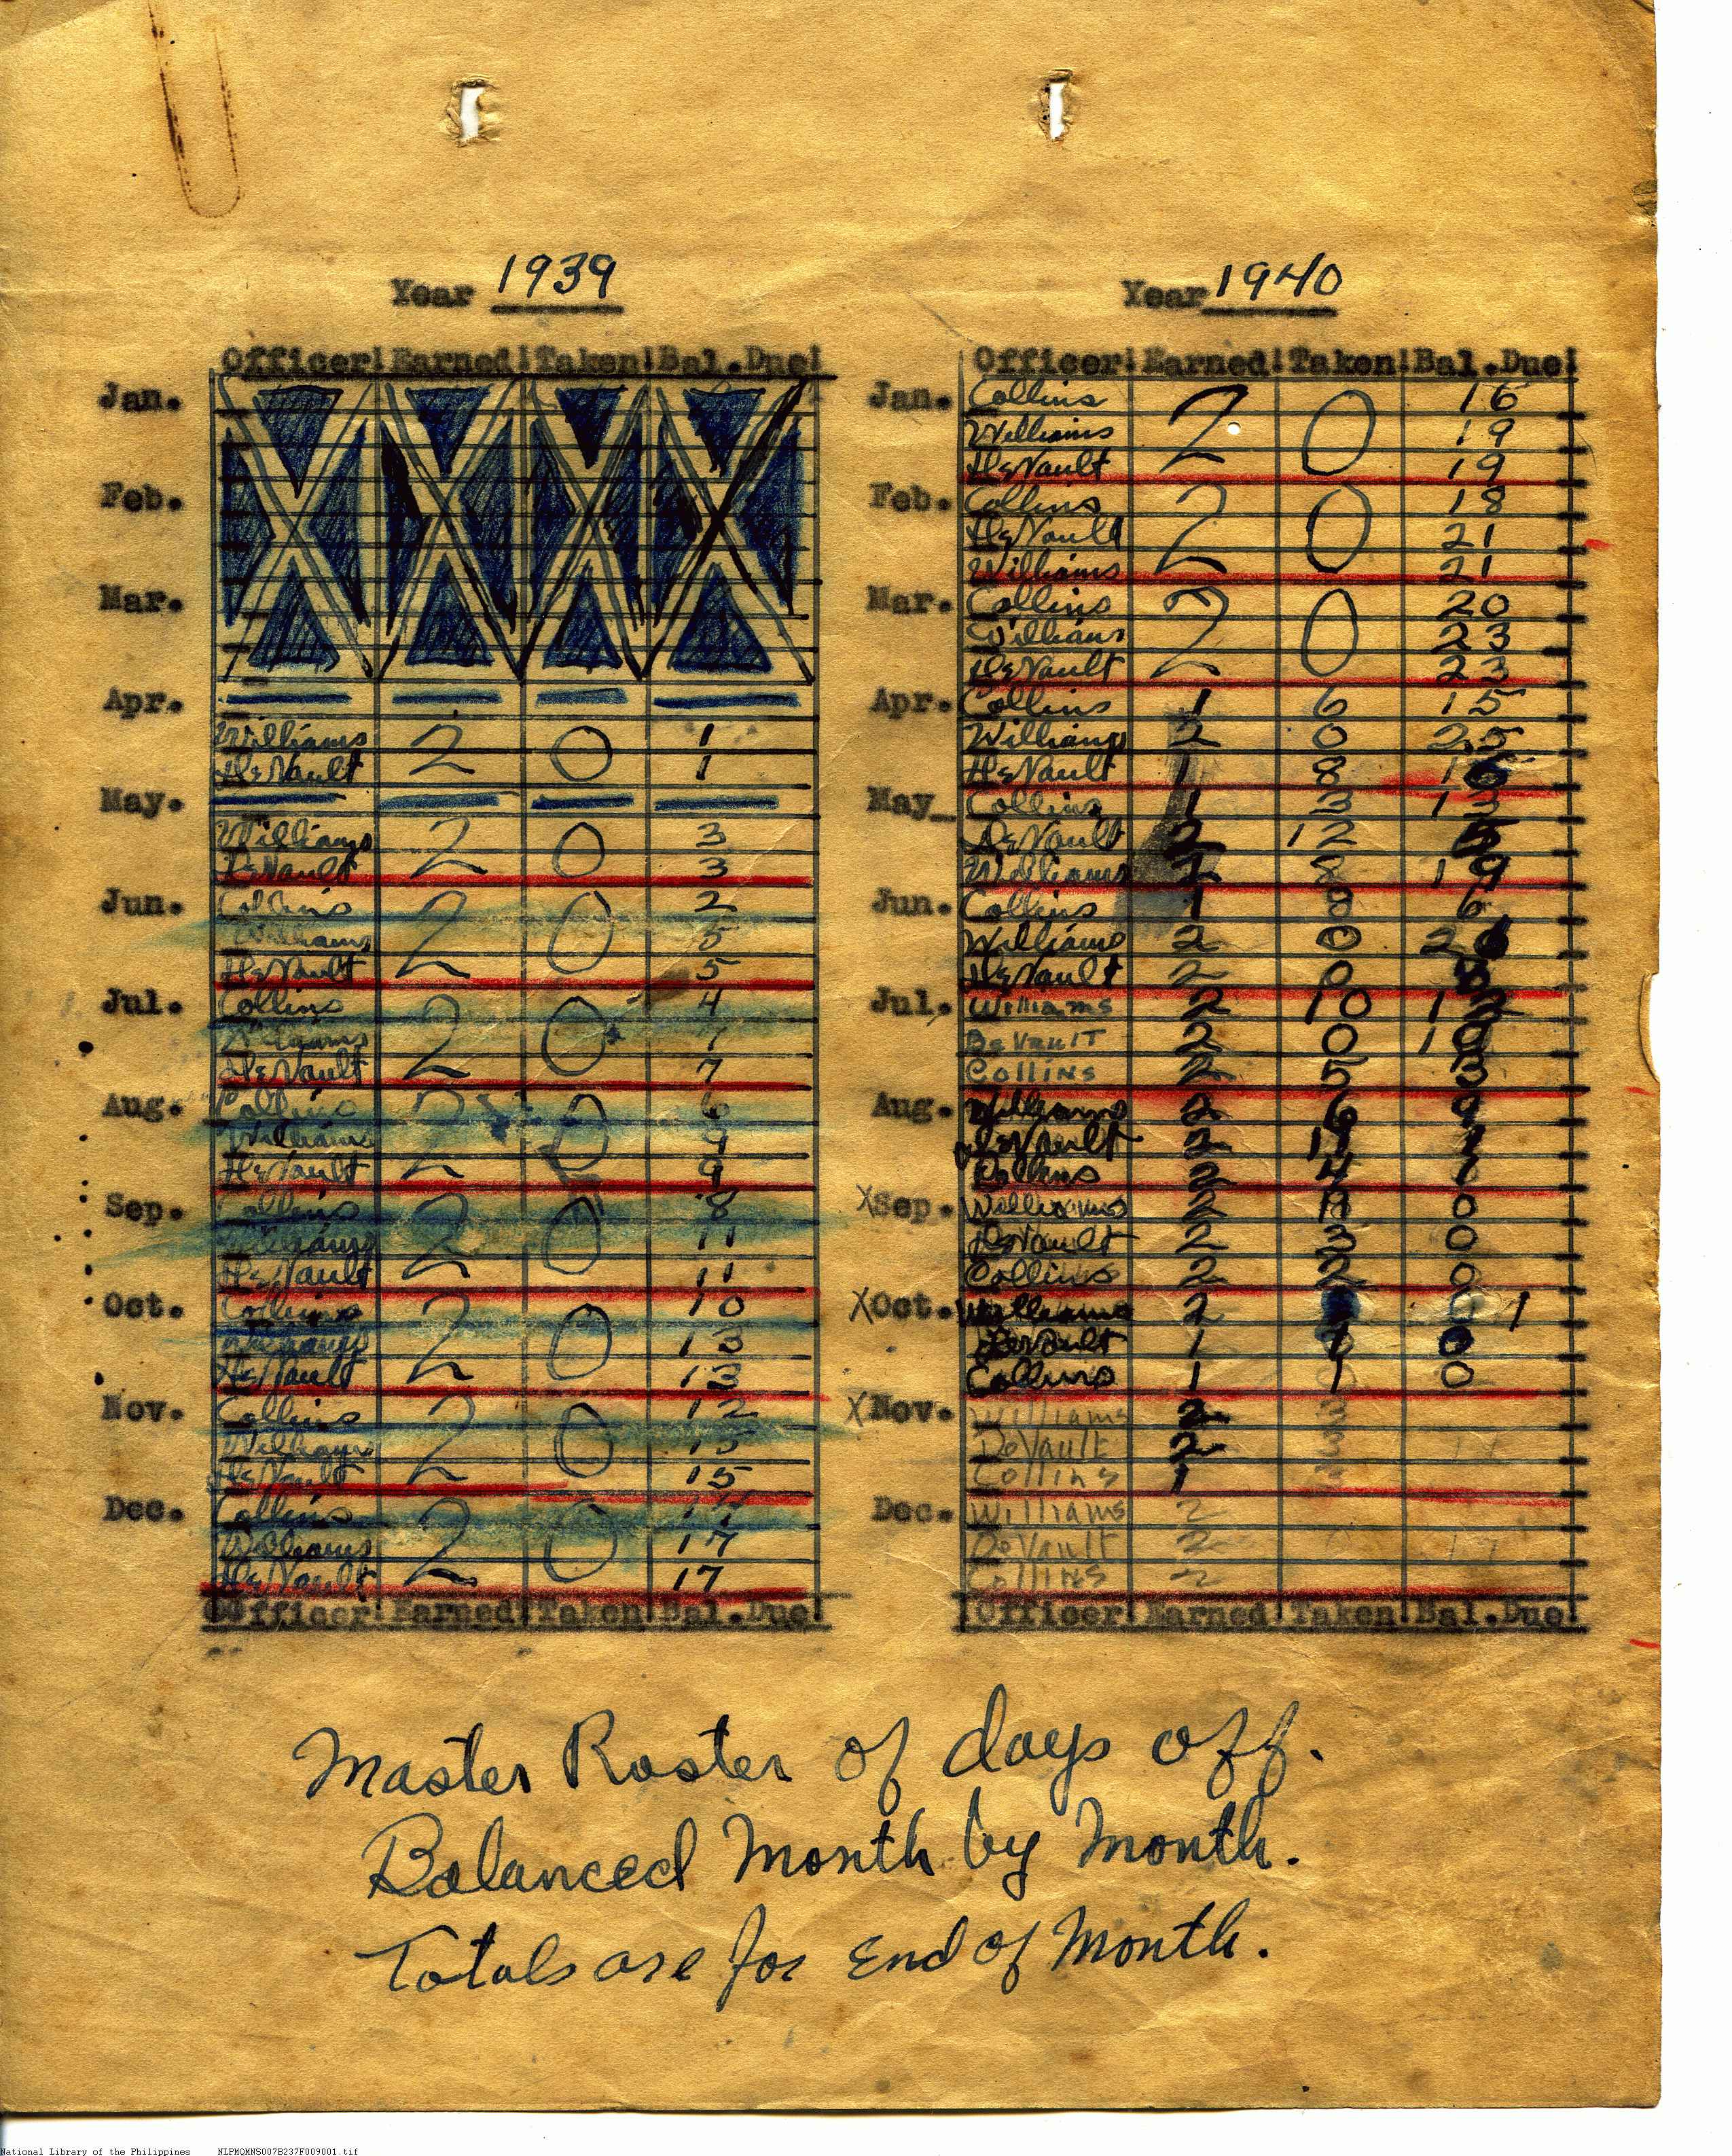 Year 1939
Officer! Earned! Taken! Bal.Due!
Jan.
Feb.
Mar.
Apr.
Williams 2 0 1
DeVault 1
May.
Williams 2 0 3
DeVault 3
Jun. Collins 2 0 2
Williams 5
DeVault 5
Jul. Collins 2 0 4
Williams 7
DeVault 7
Aug. Collins 2 0
Williams 9
DeVault 9
Sep. Collins 2 0 8
Williams 11
DeVault 11
Oct. Collins 2 0 10
Williams 13
DeVault 13
Nov. Collins 2 0 12
Williams 15
DeVault 15
Dec. Collins 2 0 14
Williams 17
DeVault 17
Officer! Earned! Taken! Bal.Due!
Year 1940
Officer! Earned! Taken! Bal.Due!
Jan. Collins 2 0 16
Williams 19
DeVault 19
Feb. Collins 2 0 18
DeVault 21
Williams 21
Mar. Collins 2 0 20
Williams 23
DeVault 23
Apr. Collins 1 6 15
Williams 2 0 25
DeVault 1 8 16
May_ Collins 1 3 13
DeVault 2 12 5
Williams 2 8 19
Jun. Collins 1 8 6
Williams 2 0
DeVault 2 0
Jul. Williams 2 10 12
DeVault 2 0 10
Collins 2 5 3
Aug. Williams 2 6 9
DeVault 2 11 1
Collins 2 4 1
XSep. Williams 2 11 0
DeVault 2 3 0
Collins 2 2 0
XOct. Williams 2 1
DeVault 1 1 0
Collins 1 1 0
XNov. Williams 2
DeVault 2
Collins 1
Dec. Williams 2
DeVault 2
Collins 2
Officer! Earned! Taken! Bal.Due!
Master Roster of days off.
Balanced Month by Month.
Totals are for End of Month.
National Library of the Philippines NLPMQMNS007B237F009001.tif